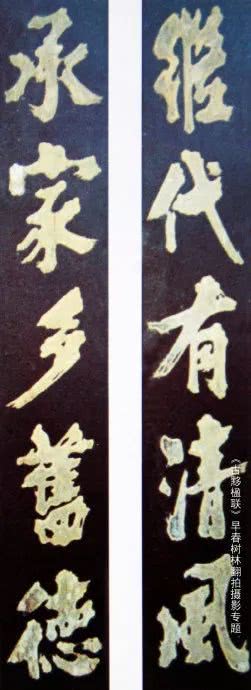 承家多舊德
繼代有清风
《古黟楹联》早春树林翻拍摄影专题